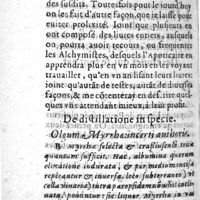 des susdits. Toutesfois pour le iourd'huy
on les fait d'autre façon, que ie laisse pour
euiter prolixité. Ioint que plusieurs en
ont composé des liures entiers, ausquels
on pourra auoir recours, ou frequenter
les Alchymistes, desquels l'Apoticaire en
apprendra plus en vn mois en les voyant
trauailler, qu'en vn an lisant leurs liures:
ioint qu'autãt de testes, autãt de diuerses
façons, & me cõtenteray en des-crire quel-
ques vns attendant mieux, à leur profit.
De distillatione in specie.
Oleum è Myrrha incerti authoris.
myrrhæ selectæ & craßiusculè tritæ
quantum sufficit. Hæc, albumina
indurata, & per medium
repleantur & inuersa, loco subterraneo
cella vinaria) intra paropsidem